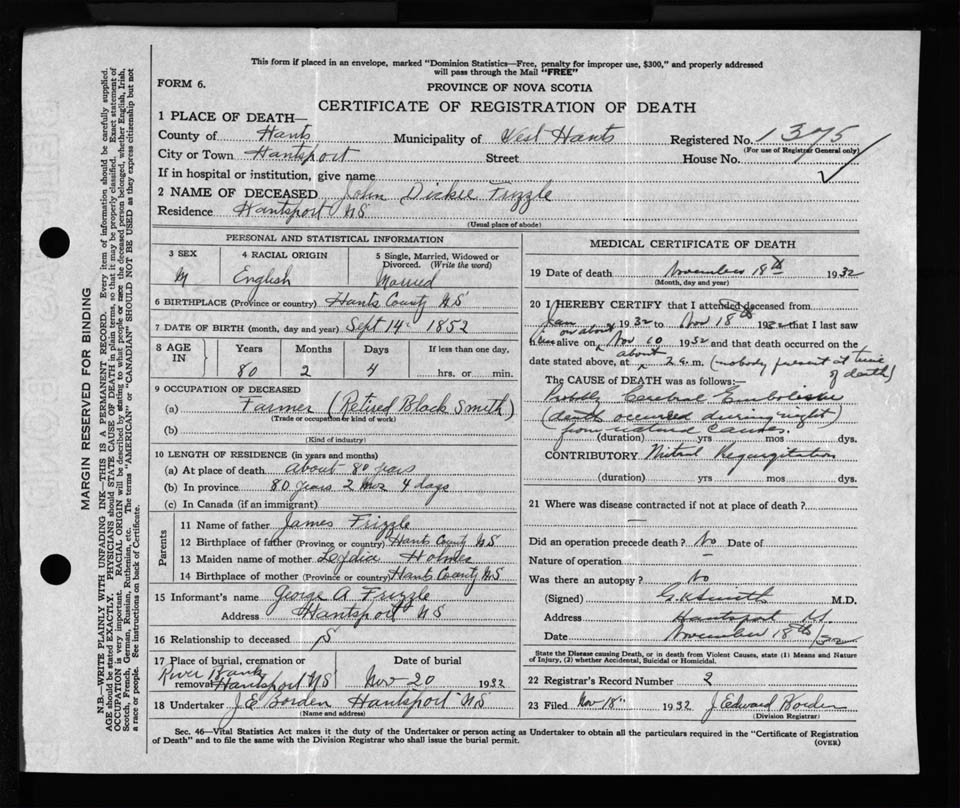 This form if placed in an envelope, marked "Dominion Statistics—Free, penalty for improper use, $300," and properly addressed
will pass through the Mail "FREE"
FORM 6.
PROVINCE OF NOVA SCOTIA
CERTIFICATE OF REGISTRATION OF DEATH
1 PLACE OF DEATH—
County of Hants Municipality of West Hants Registered No. 1375
(For use of Registrar General only)
City or Town Hantsport Street House No.
If in hospital or institution, give name
2 NAME OF DECEASED John Dickie Frizzle
Residence Hantsport NS
(Usual place of abode)
PERSONAL AND STATISTICAL INFORMATION
3 SEX 4 RACIAL ORIGIN 5 Single, Married, Widowed or Divorced. (Write the word)
M English Married
6 BIRTHPLACE (Province or country) Hants County NS
7 DATE OF BIRTH (month, day and year) Sept 14 1852
8 AGE IN Years Months Days If less than one day,
80 2 4 hrs. or min.
9 OCCUPATION OF DECEASED
(a) Farmer (Retired Black Smith)
(Trade or occupation or kind of work)
(b)
(Kind of industry)
10 LENGTH OF RESIDENCE (in years and months)
(a) At place of death about 80 years
(b) In province 80 years 2 mos 4 days
(c) In Canada (if an immigrant)
Parents
11 Name of father James Frizzle
12 Birthplace of father (Province or country) Hants County NS
13 Maiden name of mother Leydia Holmes
14 Birthplace of mother (Province or country) Hants County NS
15 Informant's name George A Frizzle
Address Hantsport NS
16 Relationship to deceased S
17 Place of burial, cremation or removal River Bank Hantsport NS Date of burial Nov 20 1932
18 Undertaker J E Borden Hantsport NS
(Name and address)
MEDICAL CERTIFICATE OF DEATH
19 Date of death November 18th 1932
(Month, day and year)
20 I HEREBY CERTIFY that I attended deceased from
Jan 1932 to Nov 18th 1932 that I last saw
on or about
him alive on Nov 10 1932 and that death occurred on the
date stated above, at about 2 a.m. (nobody present at time
of death)
The CAUSE of DEATH was as follows:—
Probably Cerebral Embolism
(death occurred during night
from natural causes.
(duration) yrs mos dys.
CONTRIBUTORY Mitral Regurgitation
(duration) yrs mos dys.
21 Where was disease contracted if not at place of death?
—
Did an operation precede death? No Date of
Nature of operation —
Was there an autopsy? No
(Signed) M.D.
Address Hantsport NS
Date November 18th 1932
State the Disease causing Death, or in death from Violent Causes, state (1) Means and Nature
of Injury, (2) whether Accidental, Suicidal or Homicidal.
22 Registrar's Record Number 2
23 Filed Nov 18 1932 J Edward Borden
(Division Registrar)
Sec. 46—Vital Statistics Act makes it the duty of the Undertaker or person acting as Undertaker to obtain all the particulars required in the "Certificate of Registration
of Death" and to file the same with the Division Registrar who shall issue the burial permit.
(OVER)
MARGIN RESERVED FOR BINDING
N.B.—WRITE PLAINLY WITH UNFADING INK—THIS IS A PERMANENT RECORD. Every item of information should be carefully supplied.
AGE should be stated EXACTLY. PHYSICIANS should STATE CAUSE OF DEATH in plain terms, so that it may be properly classified. Exact statement of
OCCUPATION is very important. RACIAL ORIGIN will be described by stating to what people or race the deceased person belonged, whether English, Irish,
Scotch, French, German, Russian, Ruthenian, etc. The terms "AMERICAN" or "CANADIAN" SHOULD NOT BE USED as they express citizenship but not
a race or people. See instructions on back of Certificate.